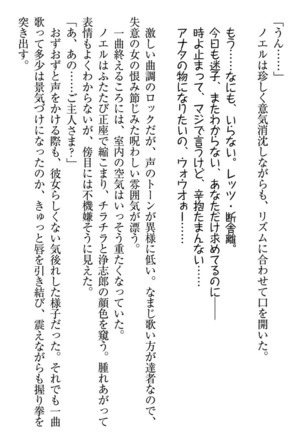 「うん……」
　ノエルは珍しく意気消沈しながらも、リズムに合わせて口を開いた。
もう……なにも、いらない。レッツ・断舎離。
今日も迷子、またわからない、あなただけ求めてるのに――
時よ止まって、マジで言うけど、辛抱たまんない――
アナタの物になりたいの、ウォウオぉー……
　激しい曲調のロックだが、声のトーンが異様に低い。なまじ歌い方が達者なので、
失意の女の恨み節じみた呪わしい雰囲気が漂う。
　一曲終えるころには、室内の空気はいっそう重たくなっていた。
　ノエルはふたたび正座で縮こまり、チラチラと浄志郎の顔色を窺う。腫れあがって
表情もよくわからないが、傍目には不機嫌そうに見えた。
「あ、あの……ご主人さま？」
　おずおずと声をかける際も、彼女らしくない気後れした様子だった。それでも一曲
歌って多少は景気づけになったのか、きゅっと唇を引き結び、震えながらも握り拳を
突き出す。